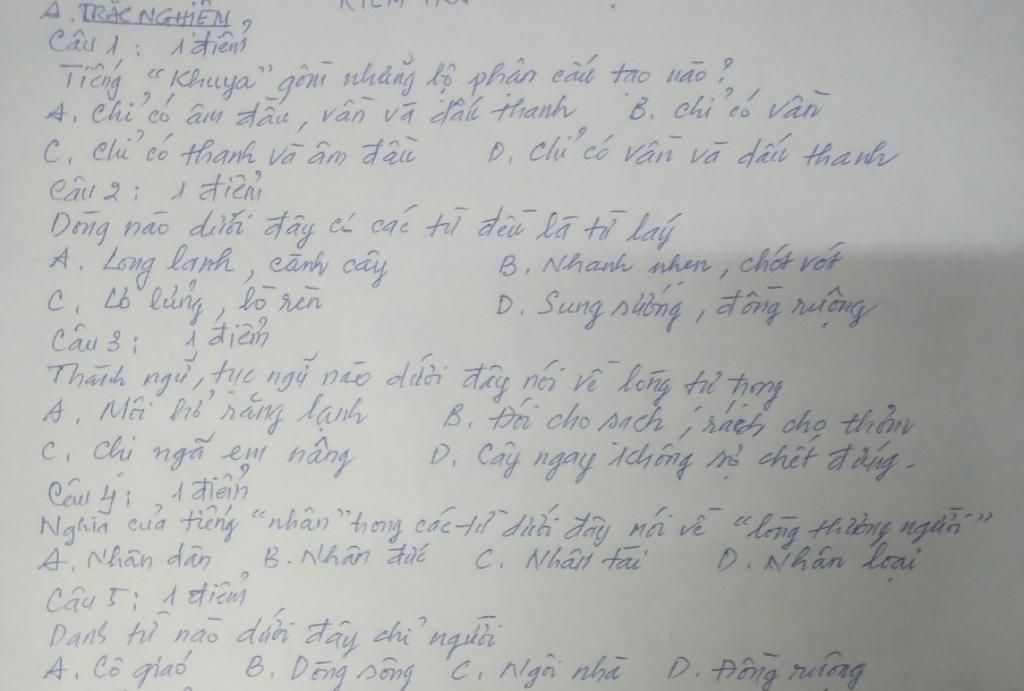 A. TRẮC NGHIỆM
Câu 1 : 1 điểm
Tiếng "Khuya" gồm những bộ phận cấu tạo nào ?
A. Chỉ có âm đầu, vần và dấu thanh B. chỉ có vần
C. Chỉ có thanh và âm đầu D. Chỉ có vần và dấu thanh
Câu 2 : 1 điểm
Dòng nào dưới đây có các từ đều là từ láy
A. Long lanh, cành cây B. Nhanh nhẹn, chót vót
C. Lơ lửng, lò rèn D. Sung sướng, đồng ruộng
Câu 3 : 1 điểm
Thành ngữ, tục ngữ nào dưới đây nói về lòng tự trọng
A. Môi hở răng lạnh B. Đói cho sạch, rách cho thơm
C. Chị ngã em nâng D. Cây ngay không sợ chết đứng.
Câu 4 : 1 điểm
Nghĩa của tiếng "nhân" trong các từ dưới đây nói về "lòng thương người"
A. Nhân dân B. Nhân đức C. Nhân tài D. Nhân loại
Câu 5 : 1 điểm
Danh từ nào dưới đây chỉ người
A. Cô giáo B. Dòng sông C. Ngôi nhà D. Đồng ruộng